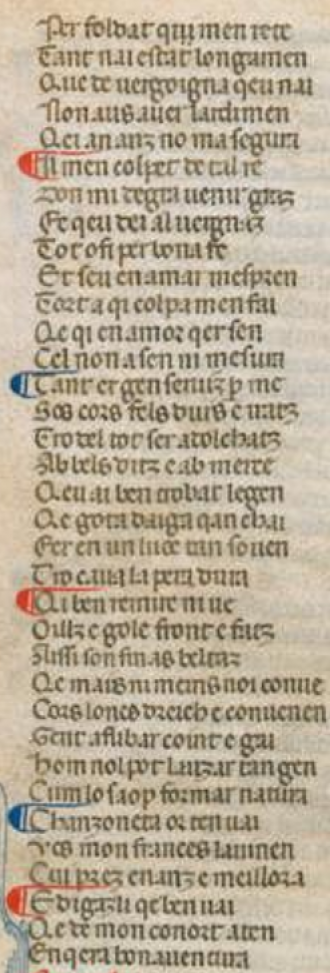 Per foldat qui men rete
Tant nai estat longamen
Que de uergoigna qeu nai
Non aus auer lardimen
Qei an anz no ma segura
Il men colpet de tal re
Don mi degra uenir gratz
Fe qeu dei al uergnatz
Tot ofi per bona fe
Et seu en amar mespren
Tort a qi colpa men fai
Qe qi en amor qer sen
Cel non a sen ni mesura
Tant er gen seruitz p me
Sos cors fels durs e iratz
Tro del tot ser adolchatz
Ab bels ditz e ab merce
Qeu ai ben trobat legen
Qe gota daiga qan chai
Fer en un luoc tan souen
Tro caua la pera dura
Qi ben remire ni ue
Oillz e gole front e fatz
Aissi son finas beltatz
Qe mais ni meins noi conue
Cors loncs dreich e conuenen
Gent afibat coint e gai
Hom nol pot lauzar tan gen
Cum lo saop formar natura
Chanzoneta or ten uai
Ves mon frances lauinen
Cui prez enanz e meillora
E digatz li qe ben uai
Qe de mon conort aten
Enqera bonauentura